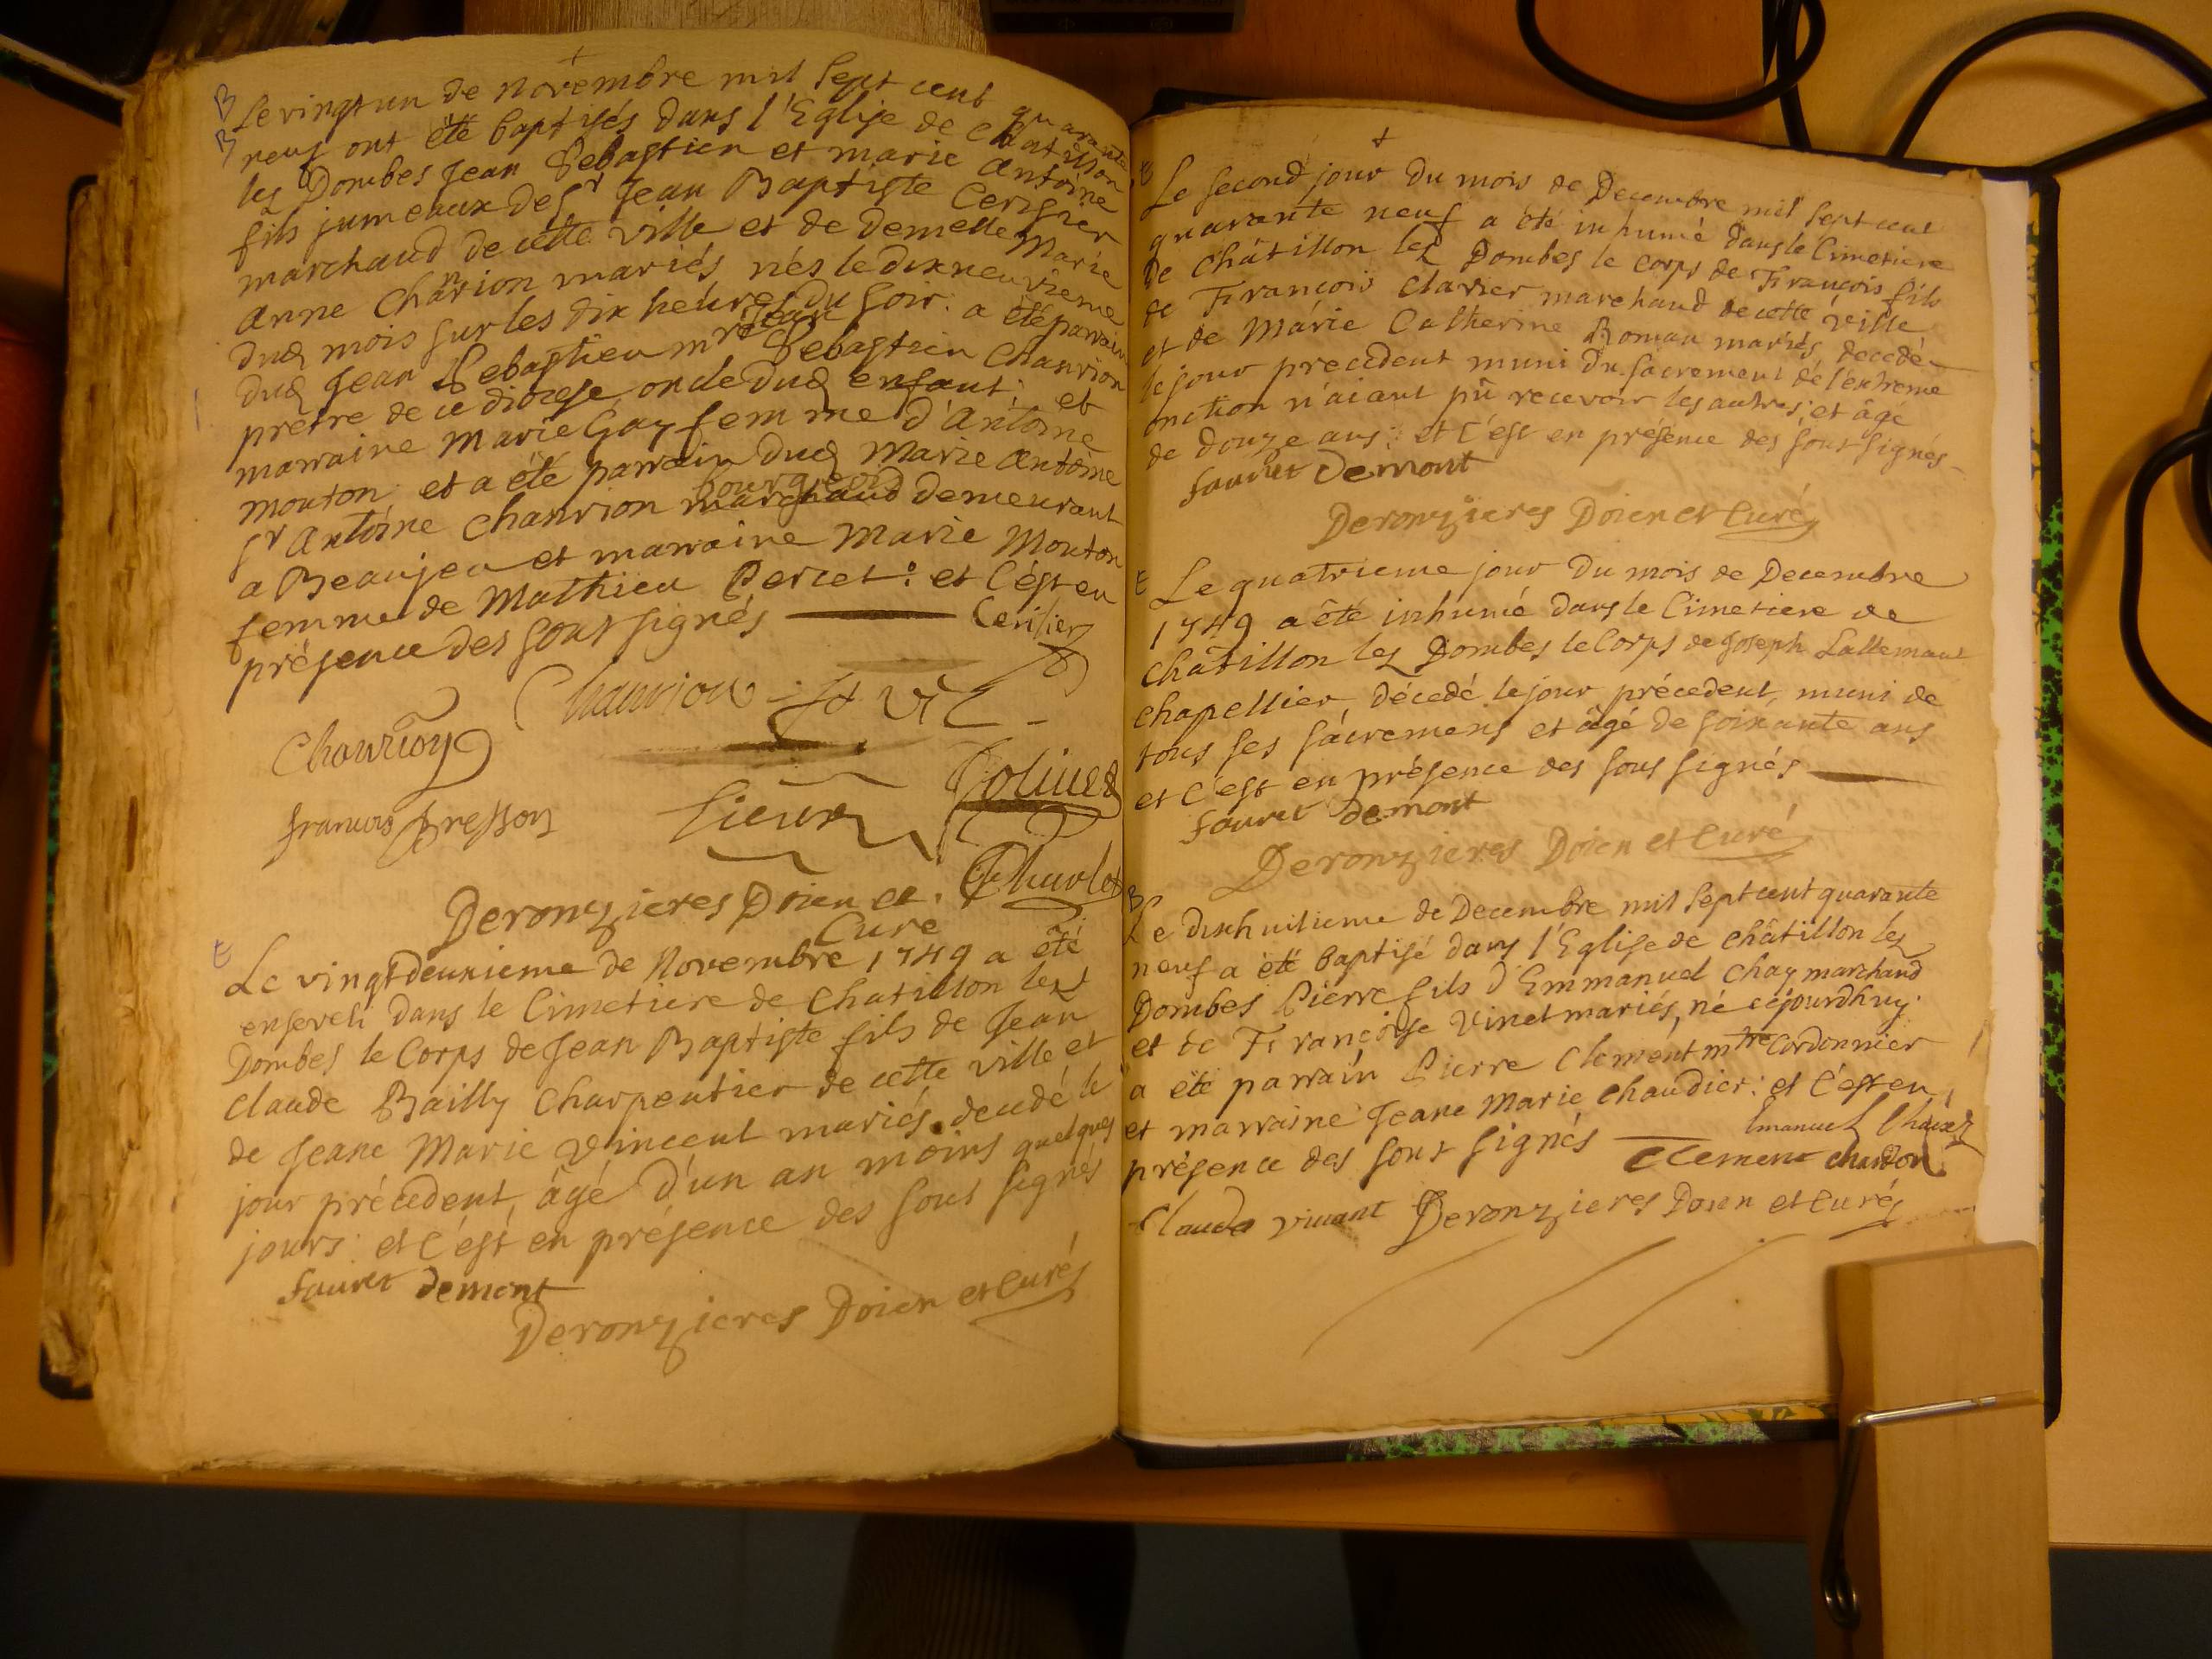 B Le vingt un de Novembre mil sept cent quarante
B neuf ont été baptisés dans l'Eglise de Chatillon
les Dombes Jean Sebastien et marie Antoine
fils jumeaux de Sr Jean Baptiste Cerisier
marchand de cette ville et de demelle Marie
Anne Chanrion mariés nés le dixneuvieme
dud mois sur les dix heures du soir. a été parrain
dud Jean Sebastien mre Jean Sebastien Chanrion
prêtre de ce diocese oncle dud enfant; et
marraine Marie Gay femme d'Antoine
mouton. et a été parrain dud Marie Antoine
bourgeois
Sr Antoine Chanrion marchand demeurant
a Beaujeu et marraine Marie Mouton
femme de Mathieu Percet: et c'est en
présence des sous signés Cerisier
Chanrion
Chanrion
francois Bresson Sieur Tolivet
Deronzieres Doien et Charlet
Curé
E Le vingt deuxieme de Novembre 1749 a été
enseveli dans le Cimetiere de Chatillon les
Dombes le Corps de Jean Baptiste fils de Jean
Claude Bailly Charpentier de cette ville et
de Jeane Marie Vincent mariés. decedé le
jour précedent, âgé d'un an moins quelques
jours: et c'est en présence des sous signés
fauret demont
Deronzieres Doien et Curé
E Le second jour du mois de Decembre mil sept cent
quarante neuf a été inhumé dans le Cimetiere
de Châtillon les Dombes le corps de François fils
de François Clavier marchand de cette ville
et de Marie Catherine Roman mariés, decedé
le jour precedent muni du sacrement de l'extreme
onction n'aiant pû recevoir les autres; et âgé
de douze ans: et c'est en présence des sous signés
fauret demont
Deronzieres Doien et Curé
E Le quatrieme jour du mois de Decembre
1749 a été inhumé dans le Cimetiere de
Châtillon les Dombes le Corps de Joseph Lallemant
chapellier, décedé le jour précedent, muni de
tous ses sacremens et âgé de soixante ans
et c'est en présence des sous signés
fauret demont
Deronzieres Doien et Curé
B Le dixhuitieme de Decembre mil sept cent quarante
neuf a été baptisé dans l'Eglise de Châtillon les
Dombes Pierre fils d'Emmanuel Chay marchand
et de Françoise Vinet mariés, né cejourdhuy.
a été parrain Pierre Clement mtre Cordonnier
et marraine Jeane Marie Chaudier: et c'est en
présence des sous signés Emanuel Chaix
Clement chardon
Claude vivant Deronzieres Doien et Curé